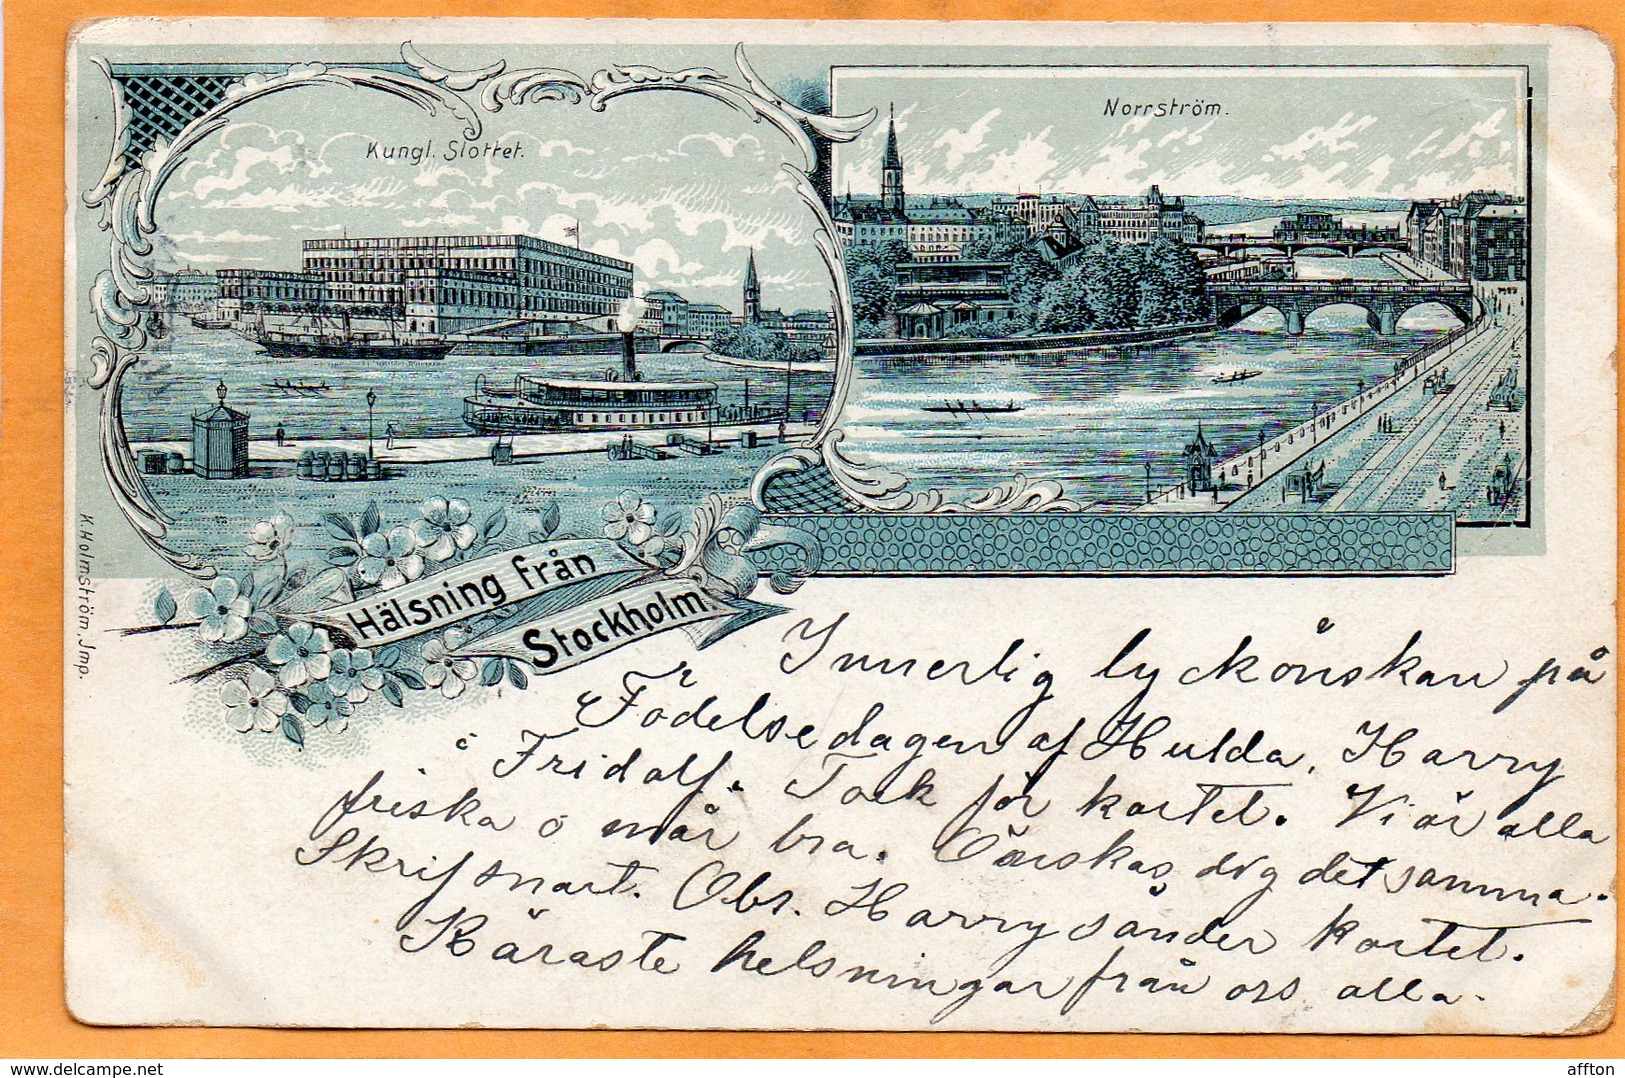 Kungl. Slottet.
Norrström.
Hälsning från
Stockholm.
K. Holmström, Imp.
Innerlig lyckönskan på
Födelsedagen af Hulda, Harry
o Fridolf. Tack för kortet. Vi är alla
friska o mår bra. Önskas dig det samma.
Skrif snart. Obs. Harry sänder kortet.
Käraste helsningar från oss alla.
www.delcampe.net
affton